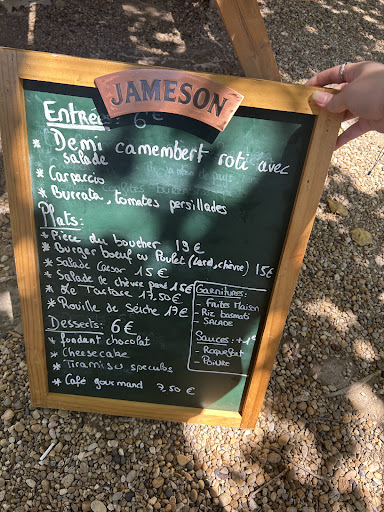 JAMESON
Entrées 6€
* Demi camembert roti avec
salade
* Carpaccio
* Burrata, tomates persillades
Plats:
* Pièce du boucher 19€
* Burger boeuf ou Poulet (lard, chèvre) 15€
* Salade Cesar 15€
* Salade de chèvre pané 15€
* Le Tartare 17.50€
* Rouille de Seiche 17€
Garnitures:
- Frites Maison
- Riz basmati
- SALADE
Sauces: +1€
- Roquefort
- Poivre
Desserts: 6€
* fondant chocolat
* Cheesecake
* Tiramisu speculos
* Café gourmand 7,50€